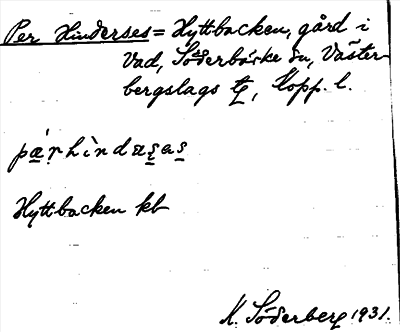 Per Hinderses = Hyttbacken, gård i
Vad, Söderbärke sn, Väster-
bergslags tg, Kopp. l.
pæ̀r̥hìndæṣaṣ
Hyttbacken kb
M. Söderberg 1931.